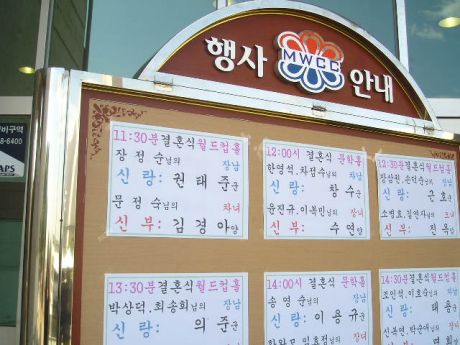 행사 MWCC 안내
비구역
8-6400
APS
11:30분결혼식월드컵홀
장정순님의 장남
신랑: 권태준군
문정숙님의 차녀
신부: 김경아양
12:00시 결혼식 문학홀
한영석.차점수님의 차남
신랑: 창수군
윤진규.이복민님의 장녀
신부: 수연양
12:30분결혼식월드컵홀
님의 장남
신랑: 근호군
님의
신부: 진옥양
13:30분결혼식월드컵홀
박상덕.최송희님의 장남
신랑: 의준군
14:00시 결혼식 문학홀
송영순님의 장남
신랑: 이용규군
님의 장녀
14:30분결혼식월드컵홀
조인석.이호순님의 장남
신랑: 태응군